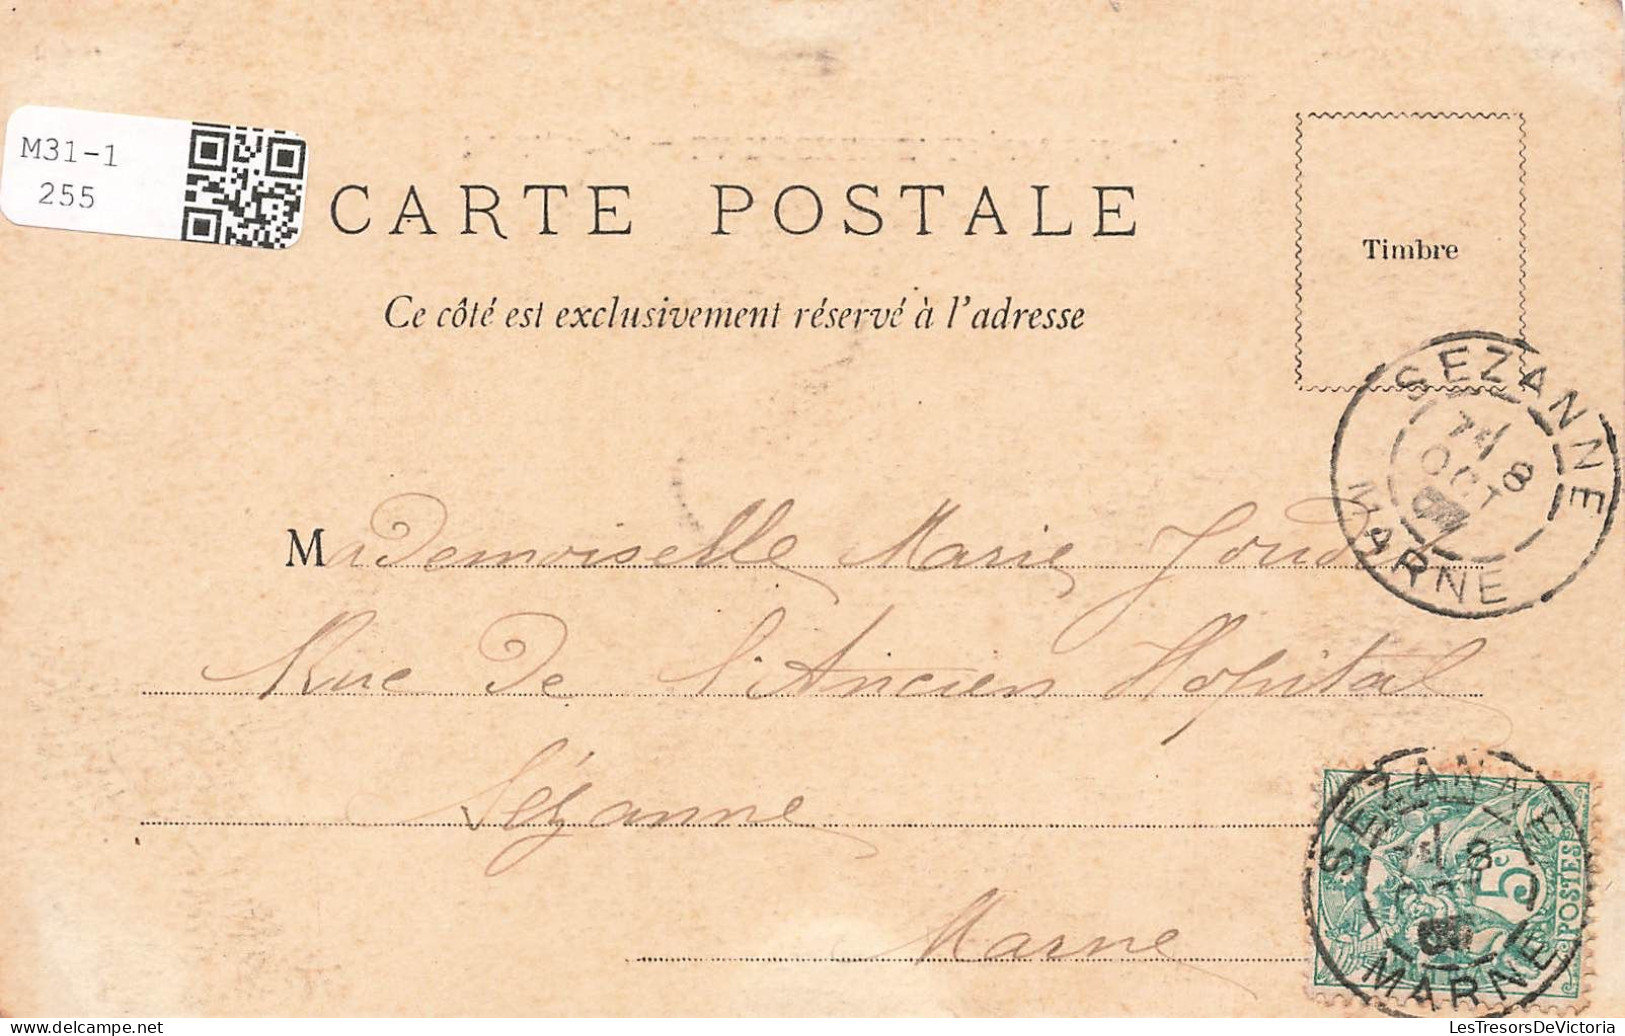 M31-1
255
CARTE POSTALE
Timbre
Ce côté est exclusivement réservé à l'adresse
SEZANNE
8
OCT
MARNE
Mademoiselle Marie
Rue De l'Ancien Hopital
Sézanne
Marne
SEZANNE
8
MARNE
5c
POSTES
Delcampe.net
LesTresorsDeVictoria